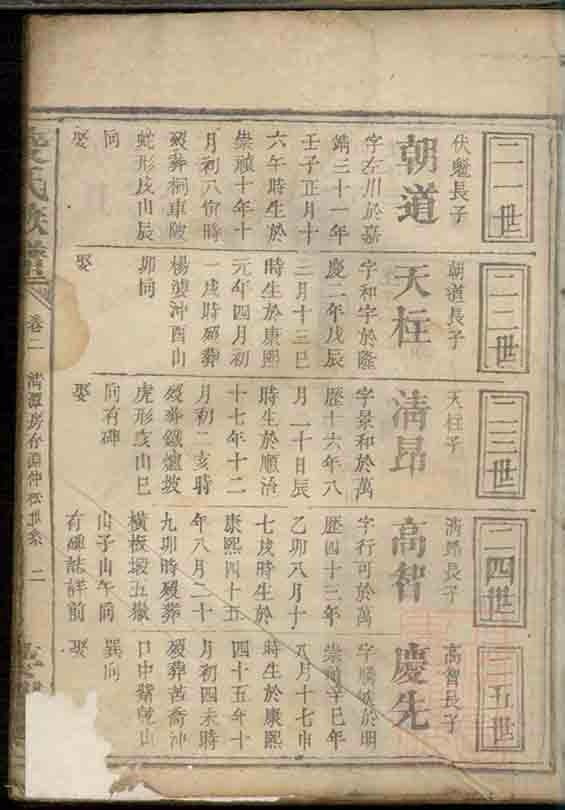 二一世
伏魁長子
朝道
字左川於嘉
靖三十一年
壬子正月十
六午時生於
崇禎十年十
月初八寅時
歿葬桐車陂
蛇形戌山辰
向
娶
二二世
朝道長子
天柱
字和字於隆
慶二年戊辰
二月十三巳
時生於康熙
元年四月初
一戌時歿葬
楊婆沖酉山
卯向
娶
二三世
天柱子
清昂
字景和於萬
歷十六年八
月二十日辰
時生於順治
十七年十二
月初二亥時
歿葬鐵爐坡
虎形亥山巳
向有碑
娶
二四世
清昂長子
高智
字行可於萬
歷四十三年
乙卯八月十
七戌時生於
康熙四十五
年八月二十
九卯時歿葬
橫板塅五嶽
山子山午向
有碑誌詳前
二五世
高智長子
慶先
字 於明
崇禎辛巳年
八月十七申
時生於康熙
四十五年十
月初四未時
歿葬苦喬沖
口申 乾山
巽向
娶
氏族譜
卷二
清潭房存淵仲松世系
二